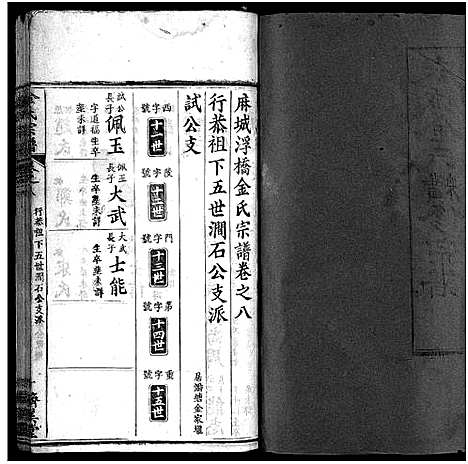 麻城浮橋金氏宗譜卷之八
行恭祖下五世澗石公支派
試公支
居游塘金家堰
西字號 十一世
陵字號 十二世
門字號 十三世
第字號 十四世
重字號 十五世
試公長子 佩玉 字道福生卒塋未詳
佩玉長子 大武 生卒塋未詳
大武長子 士能 生卒塋未詳
金氏宗譜
卷之八
行恭祖下五世澗石公支派